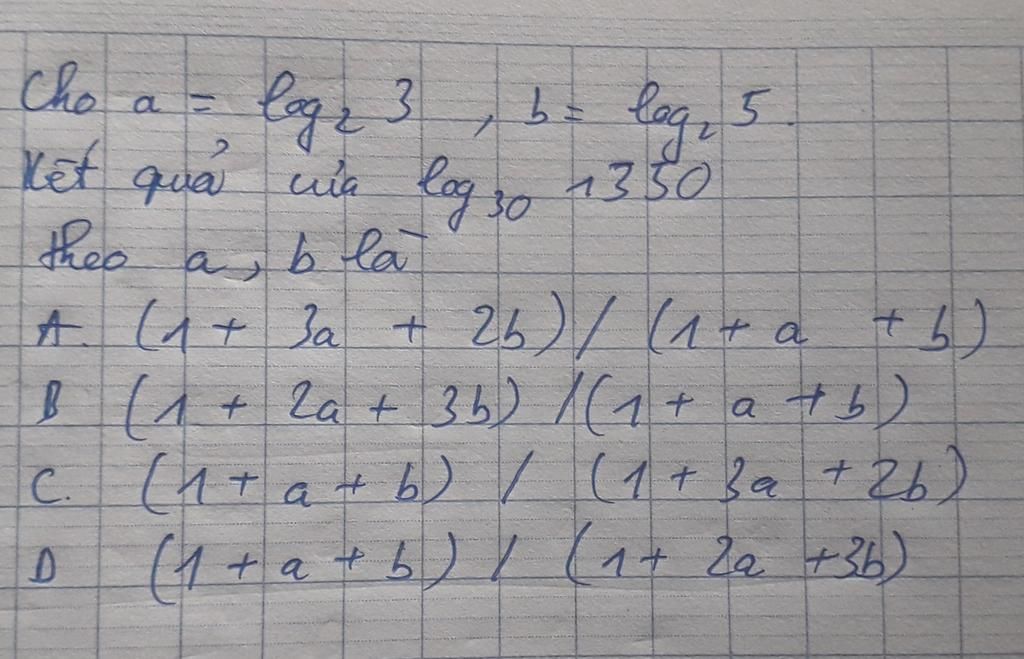 Cho a = log₂ 3 , b = log₂ 5.
Kết quả của log₃₀ 1350
theo a, b là
A. (1 + 3a + 2b) / (1 + a + b)
B (1 + 2a + 3b) / (1 + a + b)
C. (1 + a + b) / (1 + 3a + 2b)
D (1 + a + b) / (1 + 2a + 3b)